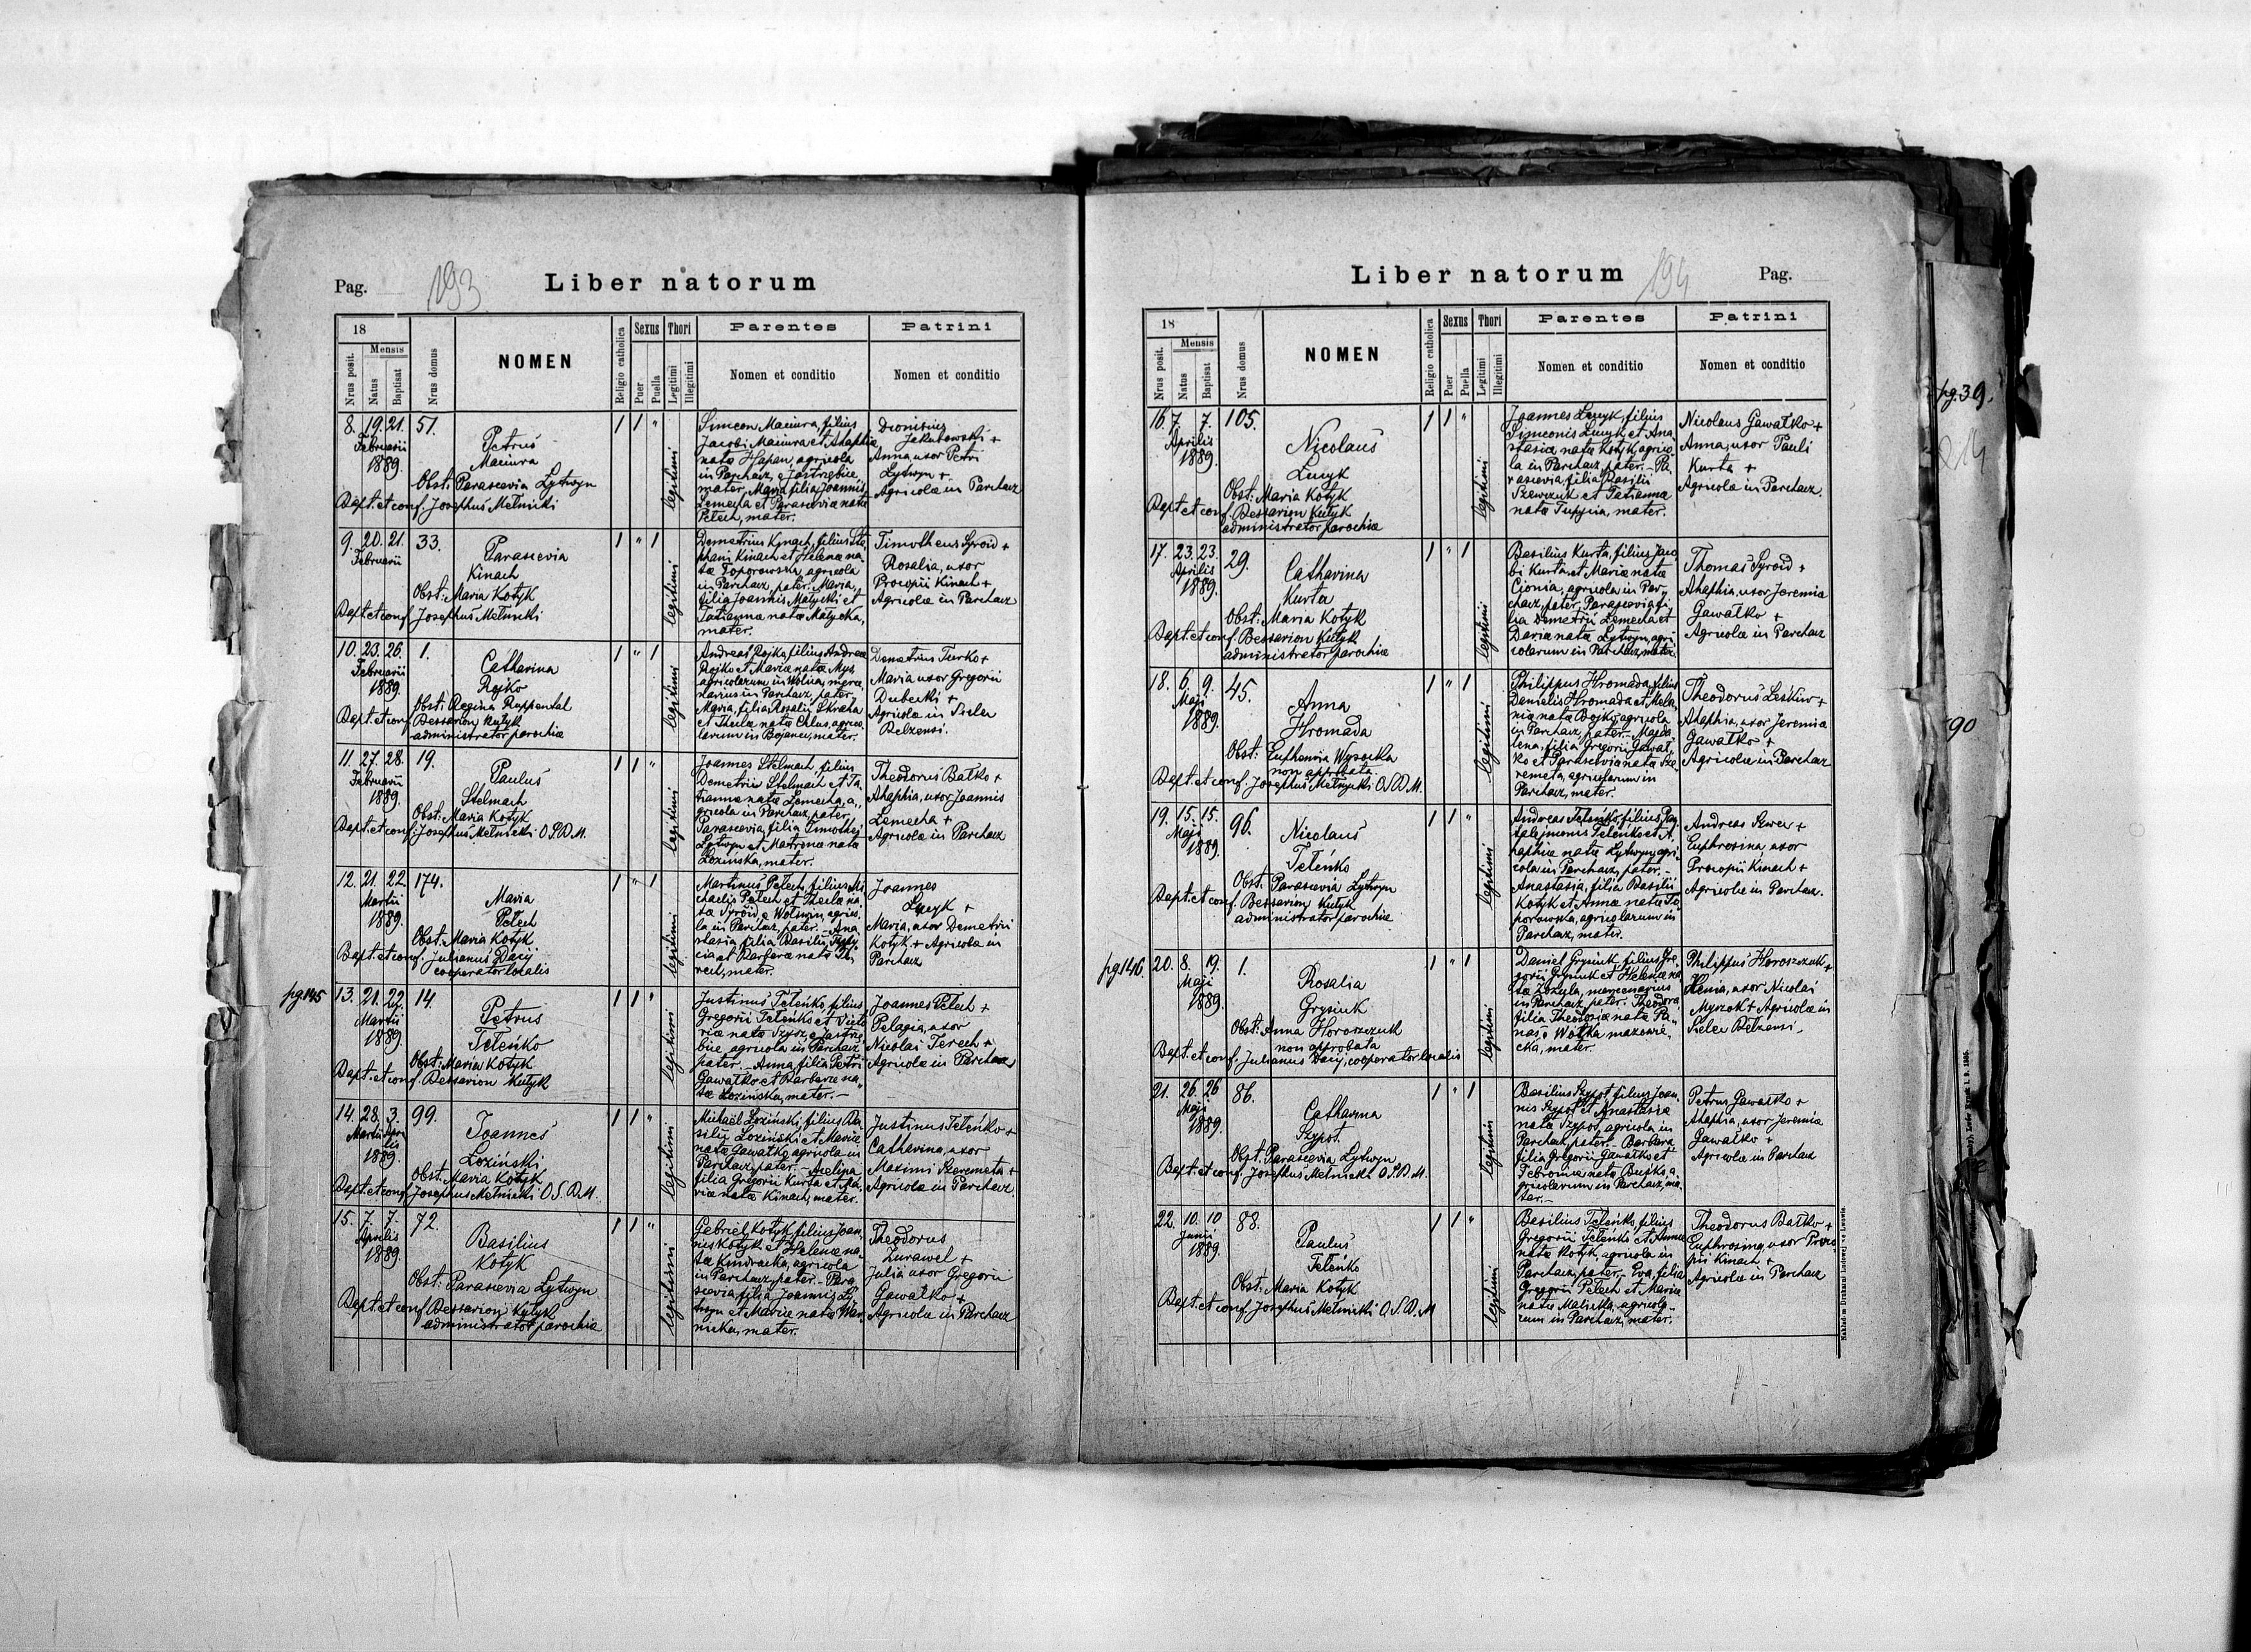 Pag. 193 Liber natorum
18
Mensis
Nrus posit.
Natus
Baptisat
Nrus domus
NOMEN
Religio catholica
Sexus
Puer
Puella
Thori
Legitimi
Illegitimi
Parentes
Nomen et conditio
Patrini
Nomen et conditio
8. 19. 21. 51.
Februarii
1889.
Petrus
Maciura
Obst: Parascevia Lytwyn
Bapt. et conf. Josephus Melnicki
1 1 "
legitimi
Simeon Maciura, filius
Jacobi Maciura et Ahaphia
nata Hapan, agricola
in Parchacz, e Jastrzębice,
mater, Maria filia Joannis
Lemecha et Parascevia nata
Petech, mater.
Dionisius
Jakubowski +
Anna uxor Petri
Lytwyn +
Agricolæ in Parchacz
9. 20. 21. 33.
Februarii
Parascevia
Kinach
Obst: Maria Kotyk
Bapt et conf. Josephus Melnicki
1 " 1
legitimi
Demetrius Kinach, filius Ste
phani Kinach et Helenæ na-
tæ Toporowska, agricola
in Parchacz, pater. Maria,
filia Joannis Matycki et
Tatianna natæ Matycka,
mater.
Timotheus Syroid +
Rosalia, uxor
Procopii Kinach +
Agricolæ in Parchacz
10. 23. 26. 1.
Februarii
1889.
Catharina
Rojko
Obst: Regina Ruppental
Bapt. et conf. Bessarion Kutyk
administrator parochiæ
1 " 1
legitimi
Andreas Rojko, filius Andreæ
Rojko et Mariæ natæ Mys
agricolarum in Wolica, merce
narius in Parchacz, pater,
Maria, filia Rosalii Skracha
et Theclæ natæ Chlus, agrico
larum in Bojanec, mater.
Demetrius Turko +
Maria uxor Gregorii
Dubecki +
Agricolæ in Sielec
Belzensi.
11. 27. 28. 19.
Februarii
1889.
Paulus
Stelmach
Obst: Maria Kotyk
Bapt. et conf: Josephus Melnicki O.S.B.M.
1 1 "
legitimi
Joannes Stelmach, filius
Demetrii Stelmach et Ta-
tianna natæ Lemecha, a-
gricola in Parchacz, pater
Parascevia, filia Timothej
Lytwyn et Matronæ natæ
Łozińska, mater.
Theodorus Bałko +
Ahaphia, uxor Joannis
Lemecha +
Agricolæ in Parchacz
12. 21. 22. 174.
Martii
1889.
Maria
Petech
Obst: Maria Kotyk
Bapt. et conf. Julianus Dacij
cooperator localis
1 " 1
legitimi
Martinus Petech, filius Mi
chaelis Petech et Theclæ na
tæ Syroid, e Wolswin, agrico-
la in Parchacz, pater. - Ana
stasia, filia Basilii
cia et Barbaræ nata
mater.
Joannes
Lucyk +
Maria, uxor Demetrii
Kotyk + Agricolæ in
Parchacz
pg 145
13. 21. 22. 14.
Martii
1889.
Petrus
Teleńko
Obst: Maria Kotyk
Bapt. et conf. Bessarion Kutyk
1 1 "
legitimi
Justinus Teleńko, filius
Gregorii Teleńko et Victo
riæ natæ Szysz, e Jastrzę
bice, agricola in Parchacz
pater. - Anna, filia Petri
Gawałko et Barbaræ na-
tæ Łozińska, mater. -
Joannes Petech +
Pelagia, uxor
Nicolai Terech +
Agricolæ in Parchacz
14. 28. 3. 99.
Martii Apri
lis
1889.
Joannes
Łoziński
Obst: Maria Kotyk
Bapt. et conf. Josephus Melnicki O.S.B.M.
1 1 "
legitimi
Michael Łoziński, filius Ba
silii Łoziński et Mariæ
natæ Gawałko, agricola in
Parchacz, pater. - Avelina
filia Gregorii Kurta et Ma
riæ natæ Kinach, mater.
Justinus Teleńko +
Catharina, uxor
Maximi Szeremeta +
Agricolæ in Parchacz.
15. 7. 7. 72.
Aprilis
1889.
Basilius
Kotyk
Obst: Parascevia Lytwyn
Bapt. et conf. Bessarion Kutyk
administrator parochiæ
1 1 "
legitimi
Gabriel Kotyk, filius Joan,
nis Kotyk et Helenæ na-
tæ Kindracka, agricola
in Parchacz, pater. - Para
scevia, filia Joannis Ly
twyn et Mariæ natæ War
nicka, mater.
Theodorus
Zurawel +
Julia uxor Gregorii
Gawałko +
Agricolæ in Parchacz
Liber natorum 194 Pag.
18
Mensis
Nrus posit.
Natus
Baptisat
Nrus domus
NOMEN
Religio catholica
Sexus
Puer
Puella
Thori
Legitimi
Illegitimi
Parentes
Nomen et conditio
Patrini
Nomen et conditio
16. 7. 7. 105.
Aprilis
1889.
Nicolaus
Lucyk
Obst: Maria Kotyk
Bapt et conf. Bessarion Kutyk
administrator parochiæ
1 1 "
legitimi
Joannes Lucyk, filius
Simeonis Lucyk et Ana-
stasiæ natæ Kotyk, agrico-
la in Parchacz, pater. - Pa-
rascevia, filia Basilii
Szewczuk et Tatianna
nata Tupycia, mater.
Nicolaus Gawałko +
Anna, uxor Pauli
Kurta +
Agricolæ in Parchacz.
17. 23. 23. 29.
Aprilis
1889.
Catharina
Kurta
Obst: Maria Kotyk
Bapt. et conf. Bessarion Kutyk
administrator parochiæ
1 " 1
legitimi
Basilius Kurta, filius Jaco
bi Kurta et Mariæ natæ
Cionia, agricola in Par-
chacz, pater, Parascevia fi
lia Demetrii Lemecha et
Daria nata Lytwyn, agri
colarum in Parchacz, mater.
Thomas Syroid +
Ahaphia, uxor Jeremiæ
Gawałko +
Agricolæ in Parchacz
18. 6. 9. 45.
Maji
1889.
Anna
Hromada
Obst: Euphemia Wysocka
non approbata
Bapt. et conf. Josephus Melnycki O.S.B.M.
1 " 1
legitimi
Philippus Hromada, filius
Danielis Hromada et Mela
niæ natæ Bojko, agricola
in Parchacz, pater. - Magda
lena, filia Gregorii Gawał-
ko et Parascevia nata Sze
remeta, agricolarum in
Parchacz, mater.
Theodorus Leskiw +
Ahaphia, uxor Jeremiæ
Gawałko +
Agricolæ in Parchacz
19. 15. 15. 96.
Maji
1889.
Nicolaus
Teleńko
Obst: Parascevia Lytwyn
Bapt. et conf. Bessarion Kutyk
administrator parochiæ
1 1 "
legitimi
Andreas Teleńko, filius Pan
talejmonis Teleńko et A-
haphiæ natæ Lytwyn, agri-
cola in Parchacz, pater. -
Anastasia, filia Basilii
Kotyk et Annæ natæ To
porowska, agricolarum in
Parchacz, mater.
Andreas Szwec +
Euphrosina, uxor
Procopii Kinach +
Agricolæ in Parchacz.
pg 146.
20. 8. 19. 1.
Maji
1889.
Rosalia
Gryniuk
Obst: Anna Horoszczuk
non approbata
Bapt. et conf. Julianus Dacij, cooperator localis
1 " 1
legitimi
Daniel Gryniuk, filius Gre-
gorii Gryniuk et Helenæ na
tæ Zozula, mercenarius
in Parchacz, pater. Theodora
filia Theodosiæ natæ Pa
nas, e Wolka mazowie-
cka, mater.
Philippus Horoszczuk +
Xenia, uxor Nicolai
Myszok + Agricolæ in
Sielec Belzensi.
21. 26. 26 86.
Maji
1889.
Catharina
Szpot
Obst: Parascevia Lytwyn
Bapt. et conf. Josephus Melnicki O.S.B.M.
1 " 1
legitimi
Basilius Szpot, filius Joan-
nis Szpot et Anastasiæ
natæ Szpot, agricola in
Parchacz, pater. - Barbara
filia Gregorii Gawałko et
Febroniæ natæ Buśko, a
gricolarum in Parchacz, ma
ter. -
Petrus Gawałko +
Ahaphia, uxor Jeremiæ
Gawałko +
Agricolæ in Parchacz
22. 10. 10 88.
Junii
1889.
Paulus
Teleńko
Obst: Maria Kotyk
Bapt. et conf. Josephus Melnicki O.S.B.M
1 1 "
legitimi
Basilius Teleńko, filius
Gregorii Teleńko et Annæ
natæ Kotyk, agricola in
Parchacz, pater. - Eva, filia
Gregorii Petech et Mariæ
natæ Malicka, agricola-
rum in Parchacz, mater.
Theodorus Bałko +
Euphrosina, uxor Proco
pii Kinach +
Agricolæ in Parchacz
Nakładem Drukarni Ludowej we Lwowie.
pg. 39.
214
90